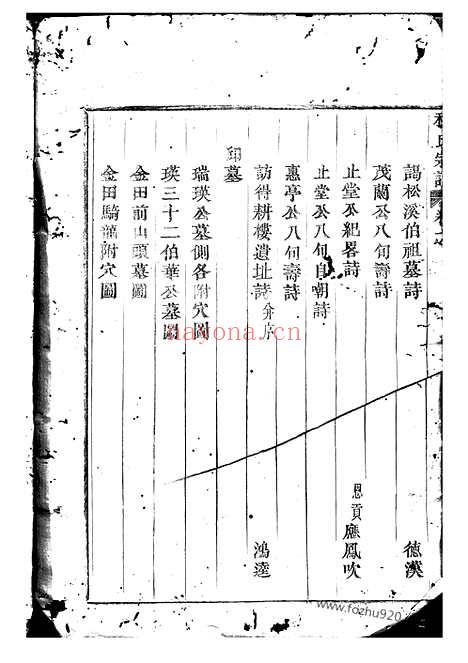 謁松溪伯祖墓詩 德漢
茂蘭公八旬壽詩
止堂公紀畧詩 恩貢 應鳳吹
止堂公八旬自嘲詩
蕙亭公八旬壽詩
訪得耕樓遺址詩 鴻逵
邱墓
瑞瑛公墓側各附穴圖
瑛三十二伯華公墓圖
金田前山頭墓圖
金田騎龍附穴圖
nayona.cn
www.fozhu920.com